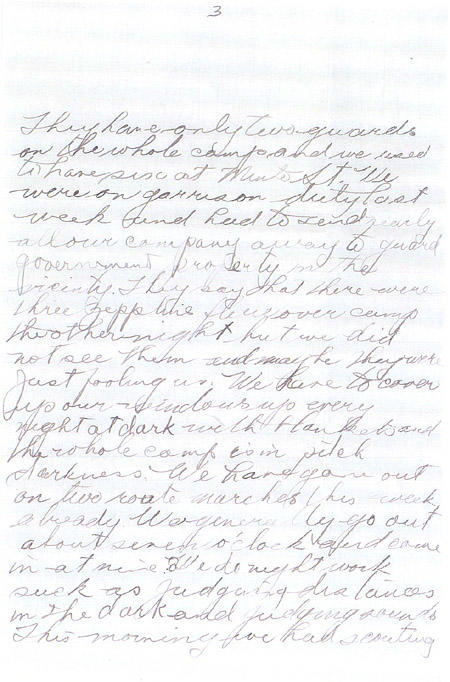 3
They have only two guards
on the whole camp and we used
to have six at Minto St. We
were on garrison duty last
week and had to send nearly
all our company away to guard
government property in the
vicinity. They say that there were
three Zeppline flying over camp
the other night but we did
not see them and maybe they were
just fooling us. We have to cover
up our windows up every
night at dark with blankets and
the whole camp is in pitch
darkness. We have gone out
on two route marches this week
already. We generally go out
about seven o'clock and come
in at nine. We do night work
such as judging distances
in the dark and judging sounds
This morning we had scouting